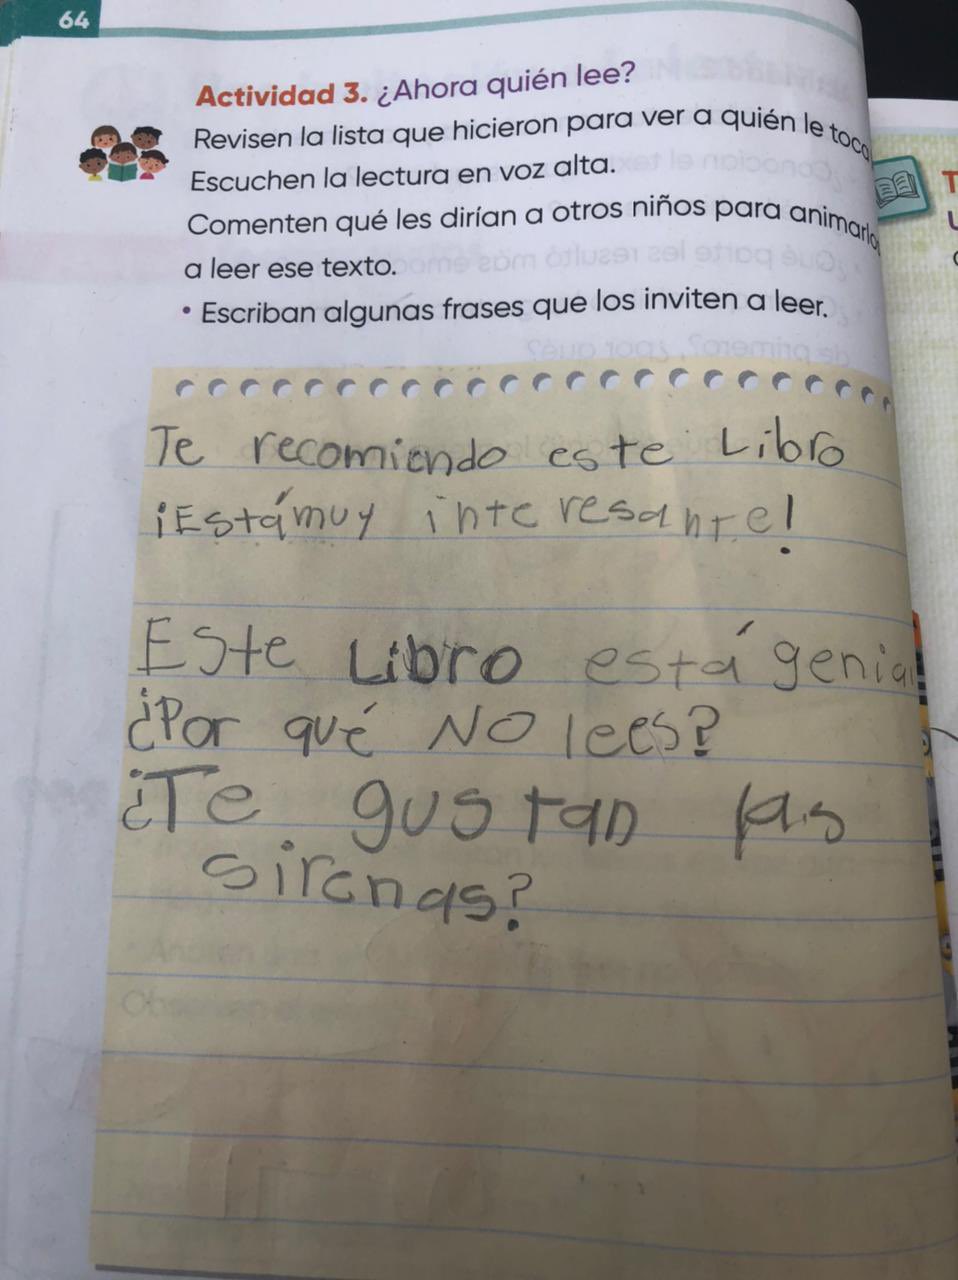 64
Actividad 3. ¿Ahora quién lee?
Revisen la lista que hicieron para ver a quién le toca
Escuchen la lectura en voz alta.
Comenten qué les dirían a otros niños para animarlo
a leer ese texto.
• Escriban algunas frases que los inviten a leer.
Te recomiendo este Libro
¡Está muy interesante!
Este Libro está genial
¿Por qué NO lees?
¿Te gustan las
sirenas?